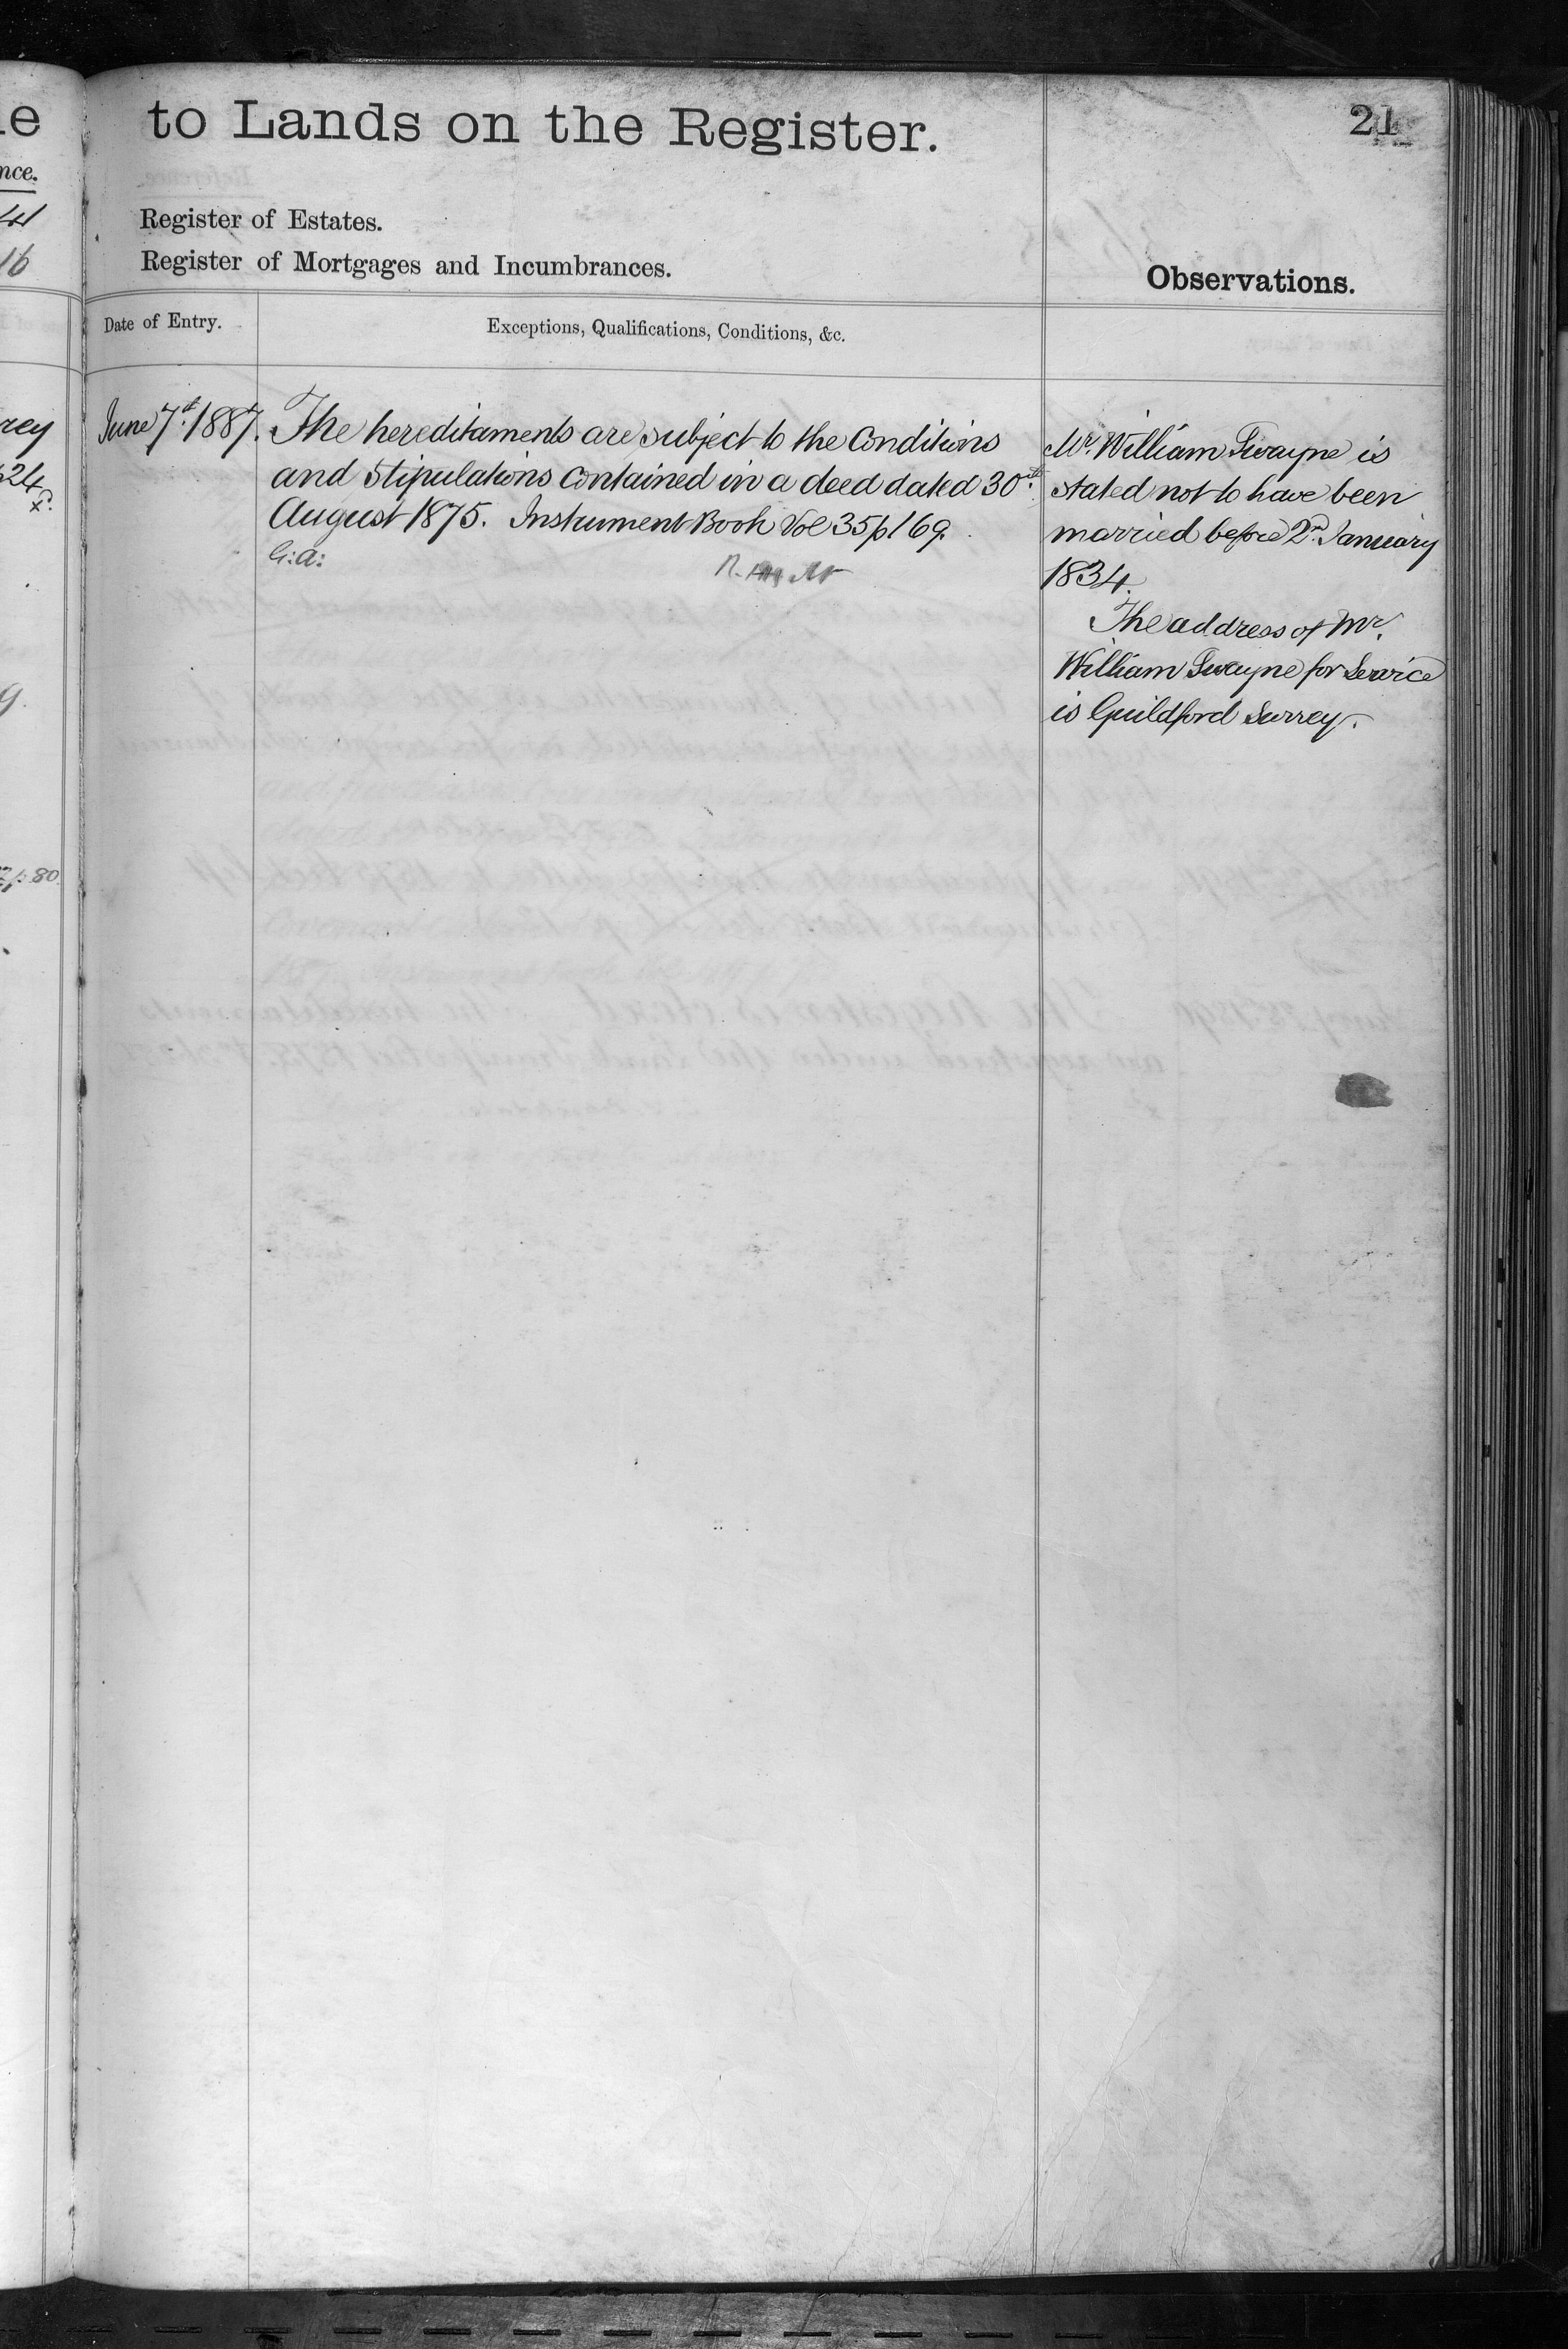 to Lands on the Register.
21
Register of Estates.
Register of Mortgages and Incumbrances.
Observations.
Date of Entry.
Exceptions, Qualifications, Conditions, &c.
June 7th 1887.
The hereditaments are subject to the Conditions
and Stipulations contained in a deed dated 30th
August 1875. Instrument Book Vol 35 p 169.
G: a:
Mr. William Swayne is
stated not to have been
married before 2nd January
1834.
The address of Mr.
William Swayne for Service
is Guildford Surrey.
nce.
41
16
rey
80